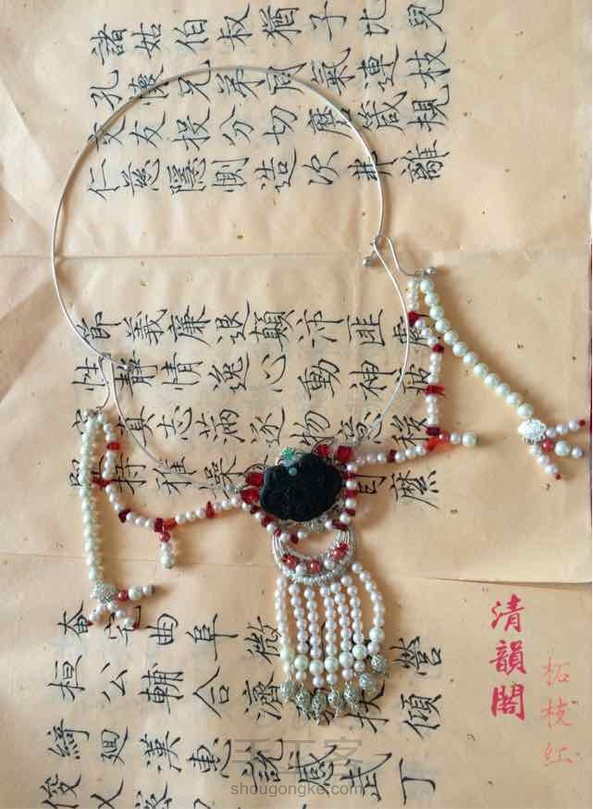 諸姑伯叔猶子比兒
孔懷兄弟同氣連枝
交友投分切磨箴規
仁慈隱惻造次弗離
節義廉退顛沛匪虧
性靜情逸心動神疲
真志滿逐物意移
持雅操 縻
奄宅曲阜微 營
桓公輔合濟 扶傾
綺迴漢惠說感武丁
俊乂
清韻閣
柘枝紅
手工客
shougongke.com